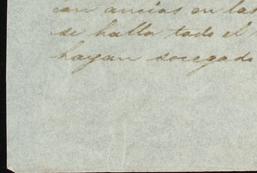 con ancias en las
se halla todo el
hayan socegado